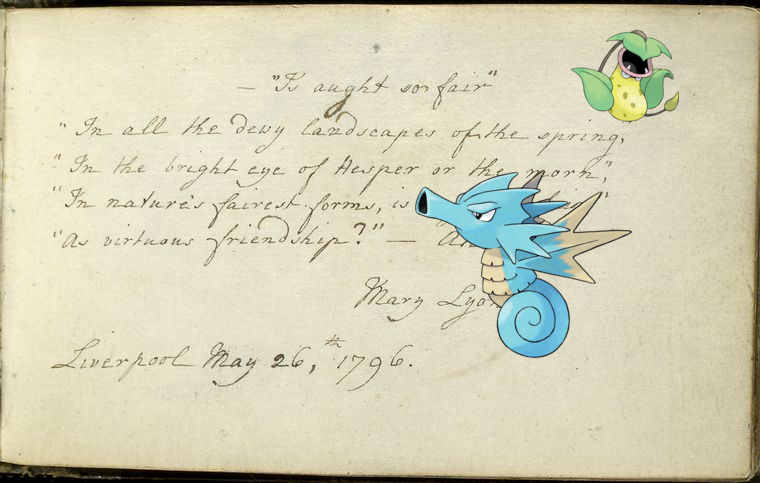 — "Is aught so fair"
"In all the dewy landscapes of the spring,
"In the bright eye of Hesper or the morn,"
"In nature's fairest forms, is
"As virtuous friendship?" —
Mary Lyon
Liverpool May 26,th 1796.